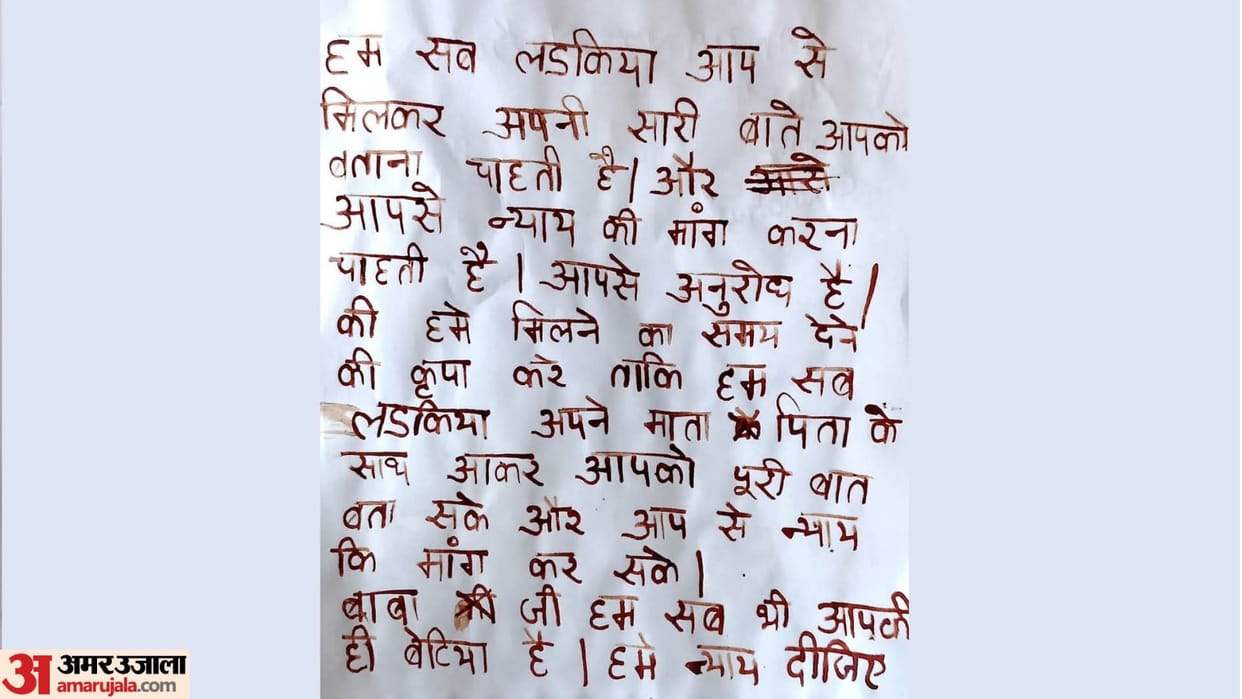 हम सब लडकिया आप से
मिलकर अपनी सारी बाते आपको
बताना चाहती है। और
आपसे न्याय की मांग करना
चाहती है। आपसे अनुरोध है।
की हमे मिलने का समय देने
की कृपा करे ताकि हम सब
लडकिया अपने माता पिता के
साथ आकर आपको पूरी बात
बता सके और आप से न्याय
कि मांग कर सके।
बाबा जी हम सब भी आपकी
ही बेटिया है। हमे न्याय दीजिए
अ अमर उजाला
amarujala.com